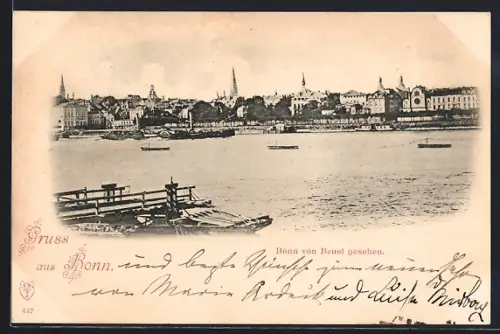 Bonn von Beuel gesehen.
Gruss
aus Bonn. und beste Wünsche zum neuen Jahr
von Marie und
442